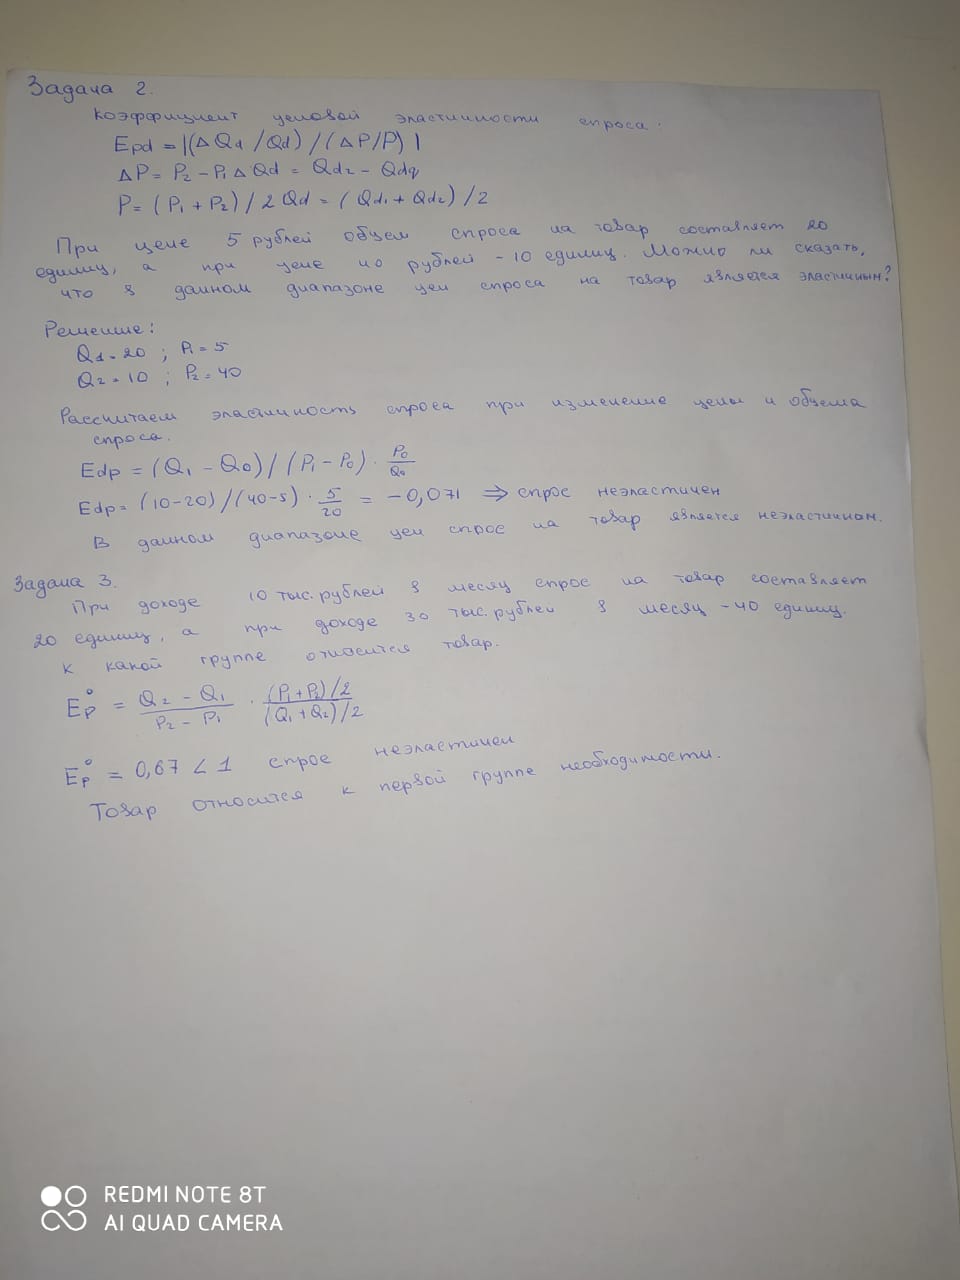 Задача 2.
Коэффициент ценовой эластичности спроса.
Epd = |(Δ Qd /Qd) / (Δ P/P) |
ΔP = P2 - P1 Δ Qd = Qd2 - Qdq
P = (P1 + P2) / 2 Qd = (Qd1 + Qd2) /2
При цене 5 рублей объем спроса на товар составляет 20
единиц, а при цене 40 рублей - 10 единиц. Можно ли сказать,
что в данном диапазоне цен спроса на товар является эластичным?
Решение:
Q1 = 20 ; P1 = 5
Q2 = 10 ; P2 = 40
Рассчитаем эластичность спроса при изменение цены и объема
спроса.
Edp = (Q1 - Q0) / (P1 - P0) · P0/Q0
Edp = (10-20) / (40-5) · 5/20 = -0,071 ⇒ спрос неэластичен
В данном диапазоне цен спрос на товар является неэластичном.
Задача 3.
При доходе 10 тыс. рублей в месяц спрос на товар составляет
20 единиц, а при доходе 30 тыс. рублей в месяц - 40 единиц.
К какой группе относится товар.
Ep° = Q2 - Q1 / P2 - P1 · (P1 + P2)/2 / (Q1 + Q2)/2
Ep° = 0,67 < 1 спрос неэластичен
Товар относится к первой группе необходимости.
REDMI NOTE 8T
AI QUAD CAMERA